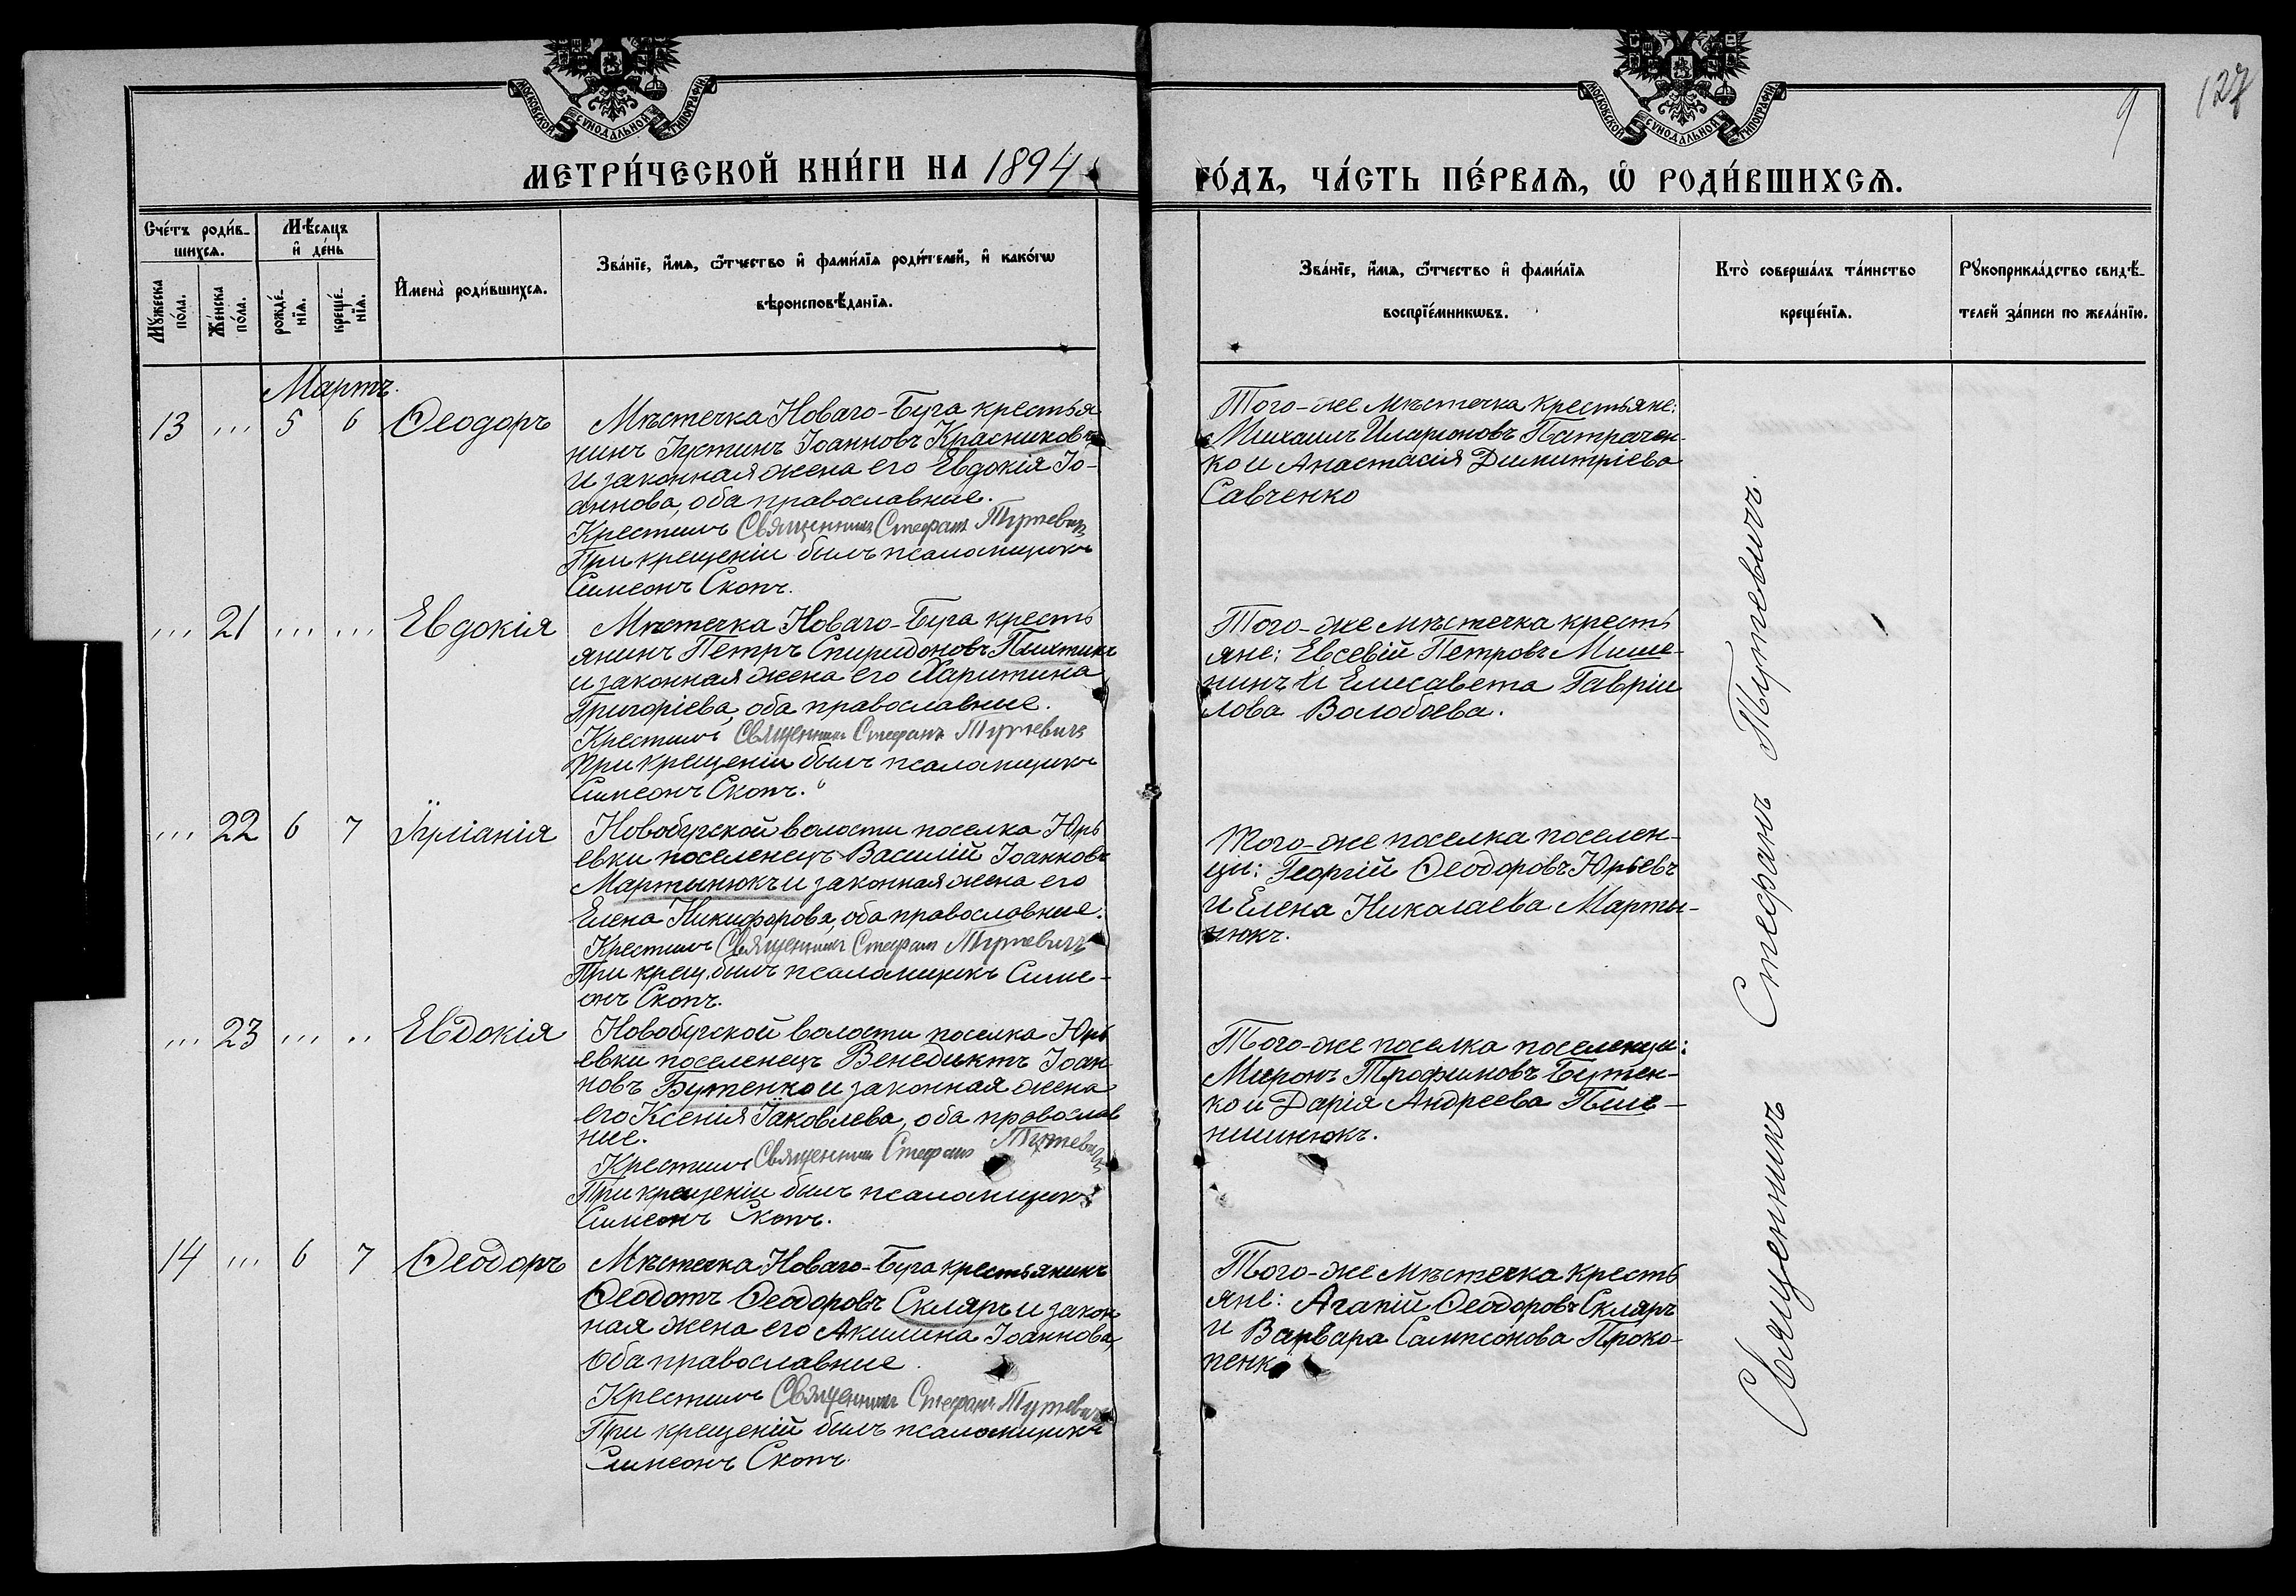 МОСКОВСКОЙ СѴНОДАЛЬНОЙ ТИПОГРАФІИ
МОСКОВСКОЙ СѴНОДАЛЬНОЙ ТИПОГРАФІИ
9
127
МЕТРИ́ЧЕСКОЙ КНИ́ГИ НА 1894
ГО́ДЪ, ЧА́СТЬ ПЕ́РВАѦ, Ѽ РОДИ́ВШИХСѦ.
Сче́тъ роди́в-
шихсѧ.
Мѣ́сѧцъ
и҆ де́нь
Мꙋ́жеска
по́ла.
Же́нска
по́ла.
рожде́-
нїѧ.
креще́-
нїѧ.
И҆мена̀ роди́вшихсѧ.
Зва́нїе, и҆́мѧ, ѻ҆́тчество и҆ фами́лїѧ роди́телей, и҆ како́гѡ
вѣроисповѣ́данїѧ.
Зва́нїе, и҆́мѧ, ѻ҆́тчество и҆ фами́лїѧ
воспрїе́мникѡвъ.
Кто̀ соверша́лъ та́инство
креще́нїѧ.
Рꙋкоприкла́дство свидѣ́-
телей за́писи по жела́нїю.
Мартъ.
13 ... 5 6 Ѳеодоръ
Мѣстечка Новаго-Буга крестья
нинъ Іустинъ Іоанновъ Красниковъ
и законная жена его Евдокія Іо-
аннова, оба православные.
Крестилъ Священникъ Стефанъ Тутевичъ
При крещеніи былъ псаломщикъ
Симеонъ Скопъ.
Того-же мѣстечка крестьяне:
Михаилъ Иларіоновъ Патрачен-
ко и Анастасія Димитріева
Савченко
... 21 ... ... Евдокія
Мѣстечка Новаго-Буга кресть
янинъ Петръ Спиридоновъ Пихтинъ
и законная жена его Харитина
Григоріева, оба православные.
Крестилъ Священникъ Стефанъ Тутевичъ
При крещеніи былъ псаломщикъ
Симеонъ Скопъ.
Того-же мѣстечка кресть
яне: Евсевій Петровъ Мише-
нинъ и Елисавета Гавріи
лова Волобоева.
... 22 6 7 Іуліанія
Новобугской волости поселка Юрь
евки поселенецъ Василій Іоанновъ
Мартынюкъ и законная жена его
Елена Никифорова, оба православные.
Крестилъ Священникъ Стефанъ Тутевичъ
При крещ. былъ псаломщикъ Симе-
онъ Скопъ.
Того-же поселка поселен-
цы: Георгій Ѳеодоровъ Юрьевъ
и Елена Николаева Марты-
нюкъ.
... 23 ... .. Евдокія
Новобугской волости поселка Юрь
евки поселенецъ Венедиктъ Іоан
новъ Бутенко и законная жена
его Ксенія Іаковлева, оба православ
ные.
Крестилъ Священникъ Стефанъ Тутевичъ
При крещеніи былъ псаломщикъ
Симеонъ Скопъ.
Того-же поселка поселенцы:
Миронъ Трофимовъ Бутен-
ко и Дарія Андреева
14 ... 6 7 Ѳеодоръ
Мѣстечка Новаго-Буга крестьянинъ
Ѳеодотъ Ѳеодоровъ Скляръ и закон
ная жена его Акилина Іоаннова,
оба православные.
Крестилъ Священникъ Стефанъ Тутевичъ
При крещеній былъ псаломщикъ
Симеонъ Скопъ.
Того-же мѣстечка кресть
яне: Агапій Ѳеодоровъ Скляръ
и Варвара Сампсонова Проко-
пенко
Священникъ Стефанъ Тутевичъ.